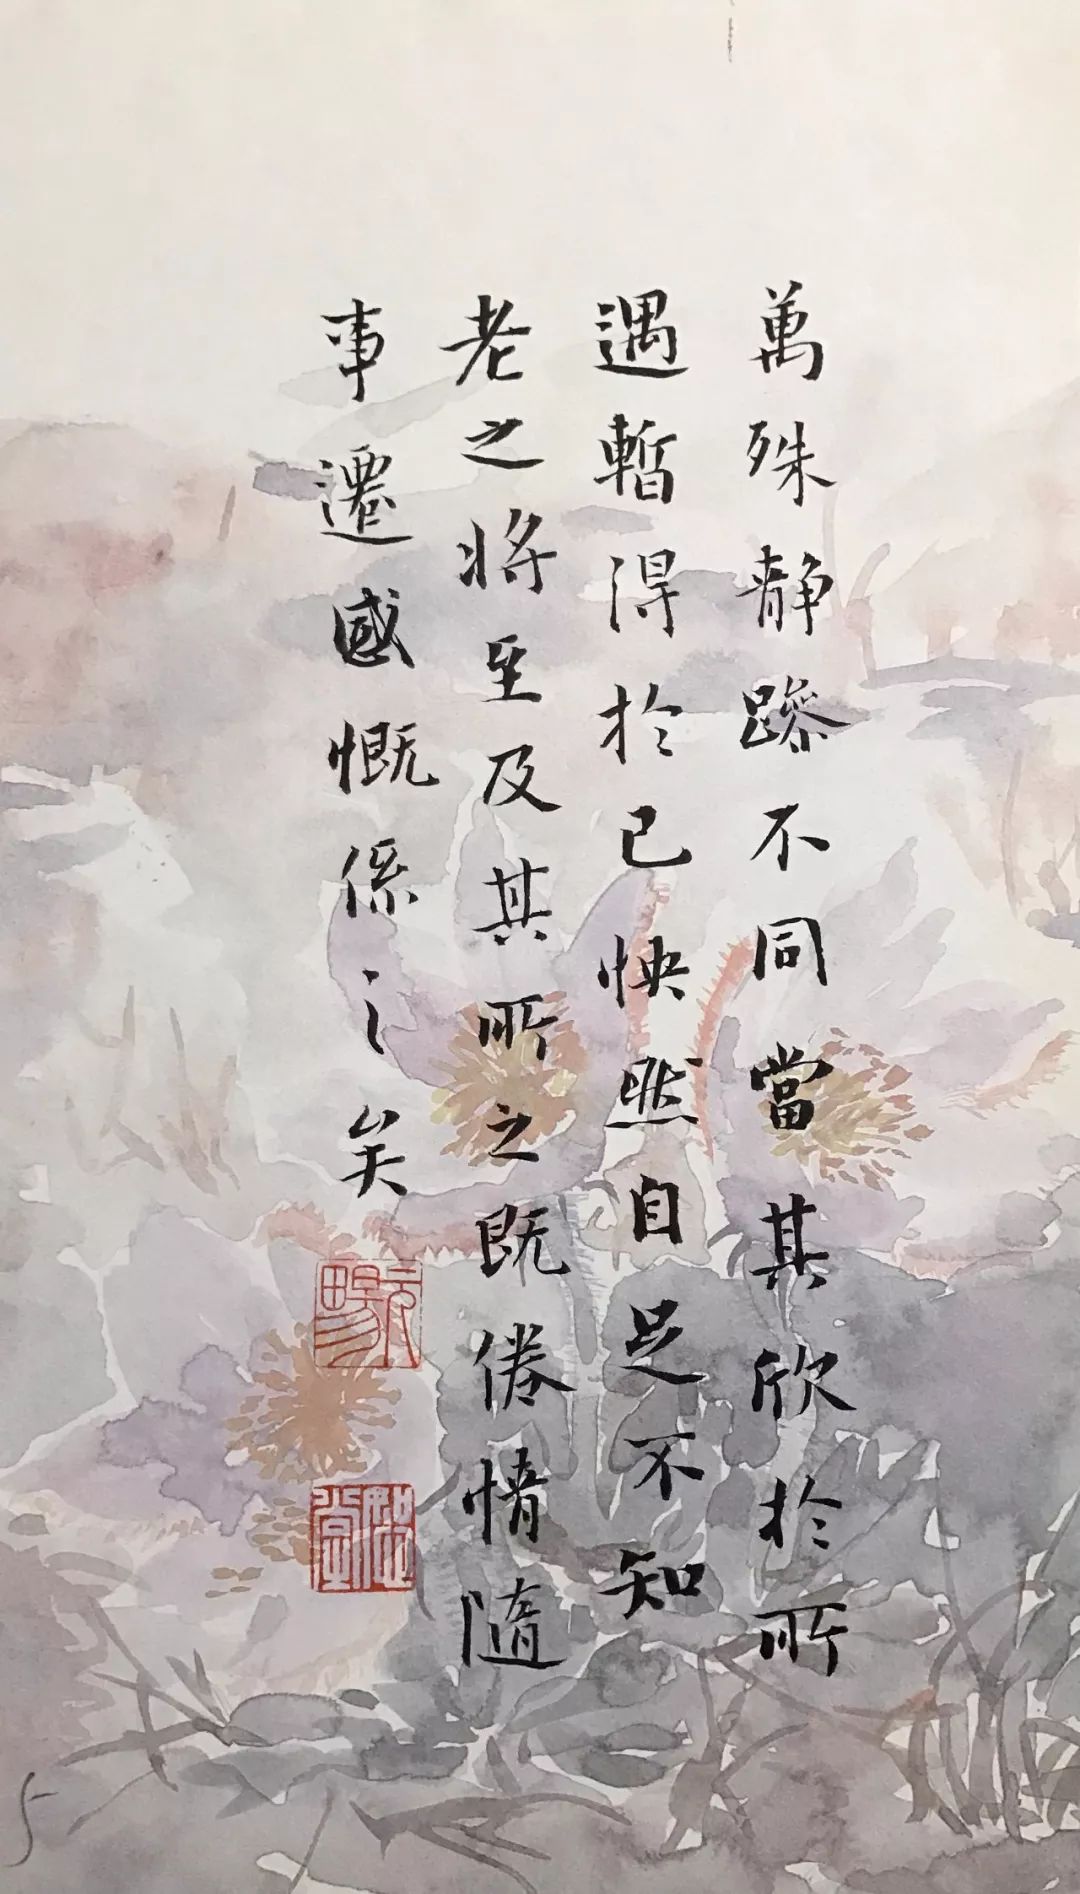 萬殊靜躁不同當其欣於所
遇暫得於己怏然自足不知
老之將至及其所之既倦情隨
事遷感慨係之矣